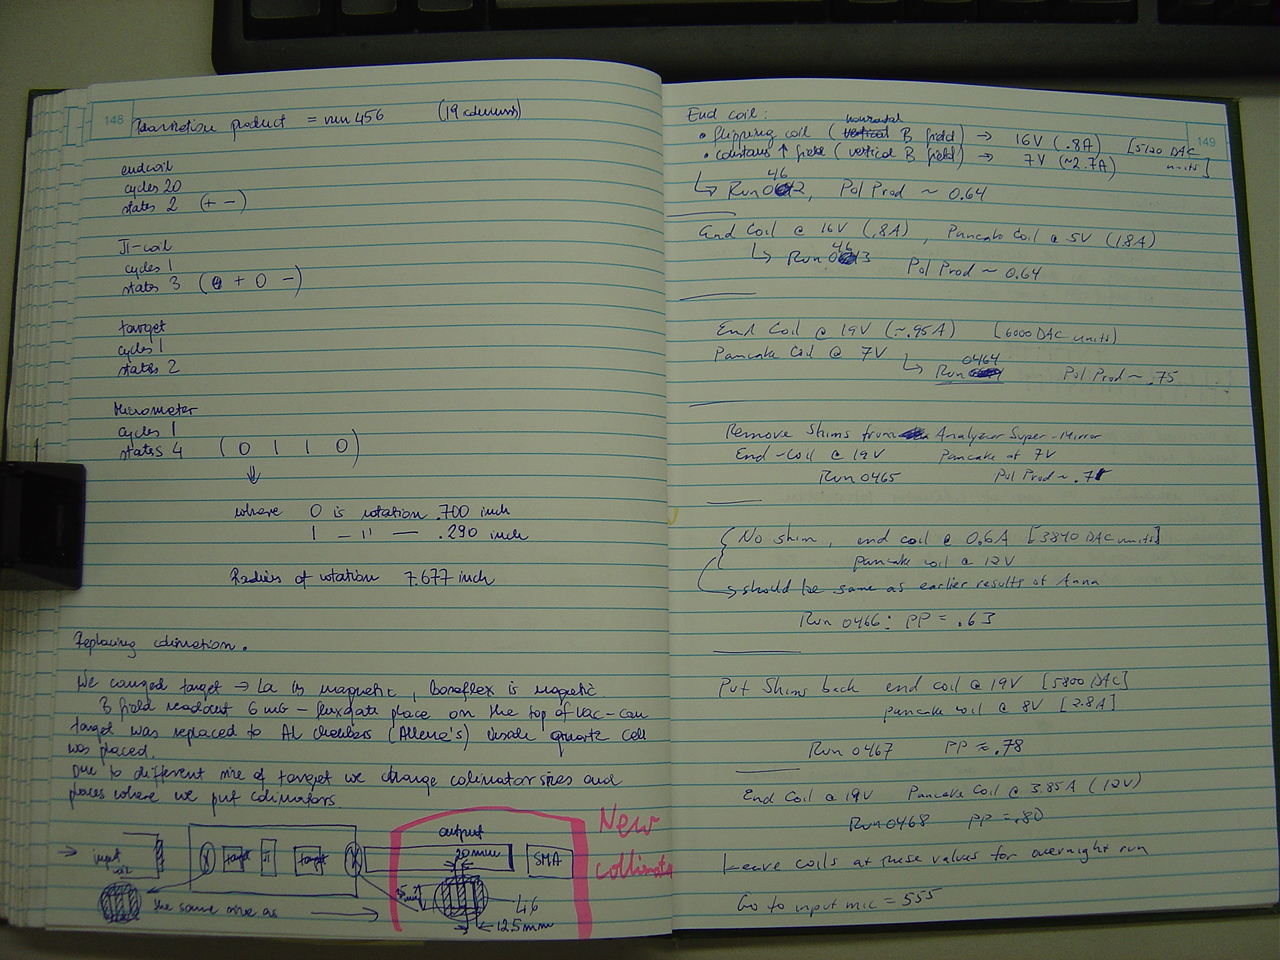 148
product = run 456 (19 columns)
endcoil
cycles 20
states 2 (+ -)
π-coil
cycles 1
states 3 (+ 0 -)
target
cycles 1
states 2
Micrometer
cycles 1
states 4 (0 1 1 0)
where 0 is rotation .700 inch
1 — 11 — .290 inch
Radius of rotation 7.677 inch
Replacing colimation.
We canged target → La is magnetic, boroflex is magnetic.
B field readout 6 mG – fluxgate place on the top of vac-can
target was replaced to Al chambers (Allene's) inside quartz cell
was placed.
Due to different size of target we change colimator sizes and
places where we put colimators.
input
target
π
target
output
20mm
SMA
New
collimator
the same size as
5mm
4.6
12.5mm
149
End coil:
• flipping coil (horizontal B field) → 16V (.8A) [5120 DAC units]
• constant ↑ field (vertical B field) → 7V (~2.7A)
↳ Run 0462, Pol Prod ~ 0.64
End Coil @ 16V (.8A), Pancake Coil @ 5V (1.8A)
↳ Run 0463 Pol Prod ~ 0.64
End Coil @ 19V (~.95A) [6000 DAC units]
Pancake Coil @ 7V
↳ Run 0464 Pol Prod ~ .75
Remove Shims from Analyzer Super-Mirror
End-Coil @ 19V Pancake at 7V
Run 0465 Pol Prod ~ .7
No shim, end coil @ 0.6A [3840 DAC units]
pancake coil @ 12V
→ should be same as earlier results of Anna
Run 0466: PP = .63
Put Shims back end coil @ 19V [5800 DAC]
pancake coil @ 8V [2.8A]
Run 0467 PP ≈ .78
End Coil @ 19V Pancake Coil @ 3.85A (12V)
Run 0468 PP = .80
Leave coils at these values for overnight run
Go to input mic = 555